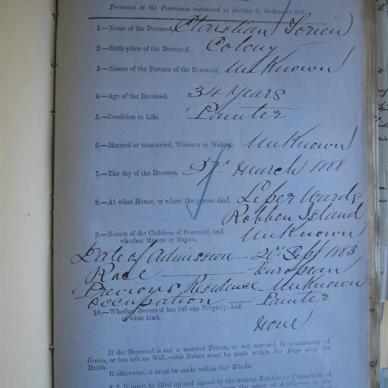 Pursuant to the Provisions contained in Section 9, Ordinance 104.
1.—Name of the Deceased, Christian Torien
2.—Birth-place of the Deceased. Colony
3.—Names of the Parents of the Deceased. Unknown
4.—Age of the Deceased. 34 Years
5.—Condition in Life. Painter
6.—Married or unmarried, Widower or Widow. Unknown
7.—The day of the Decease. March 1888
8.—At what House, or where the person died. Leper Wards
Robben Island
9.—Names of the Children of Deceased, and Unknown
whether Minors or Majors.
Date of Admission — 20 Sept 1883
Race — European
Previous Residence Unknown
Occupation — Painter
10.—Whether Deceased has left any Property, and
of what kind.
None
If the Deceased is not a married Person, or not married in community of
Goods, or has left no Will,—this Notice must be made within Six Days after the
Death.
If otherwise, it must be made within Six Weeks.
must be filled up and signed by the nearest Relative or Connection of